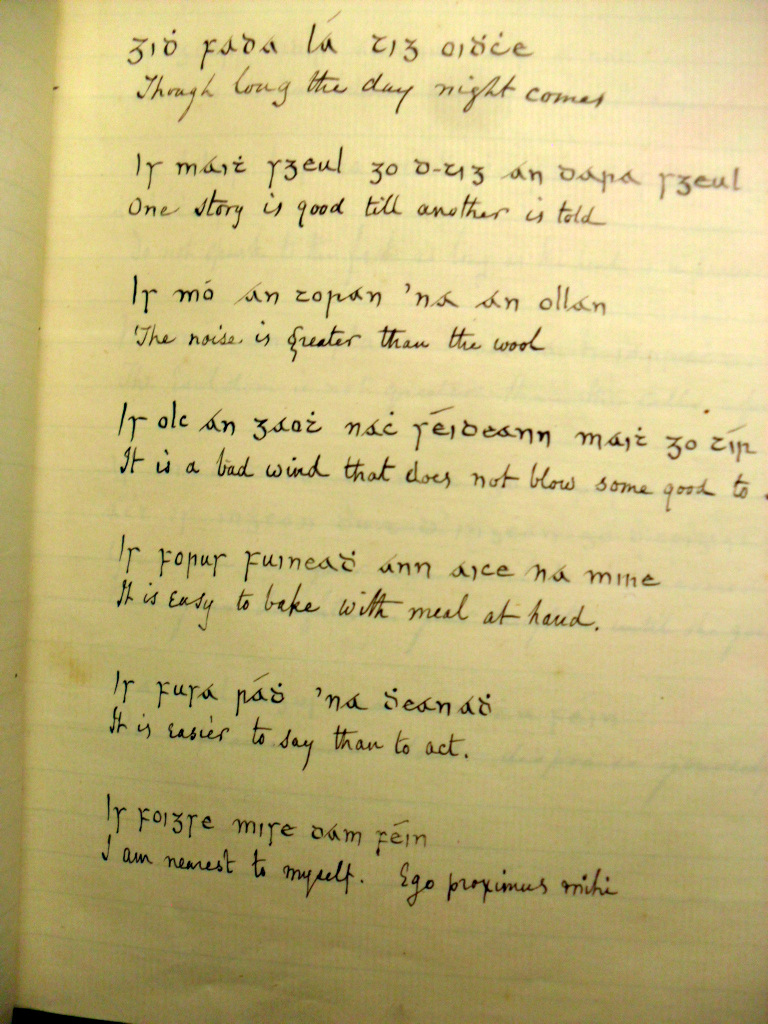 Ᵹiḋ fada lá tiᵹ oiḋċe
Though long the day night comes
Is maiṫ sᵹeul ᵹo d-tiᵹ an dara sᵹeul
One story is good till another is told
Is mó an toran 'na an ollan
The noise is greater than the wool
Is olc an ᵹaoṫ naċ séideann maiṫ ᵹo tír
It is a bad wind that does not blow some good to
Is forus fuineaḋ ann aice na mine
It is easy to bake with meal at hand.
Is fusa ráḋ 'na ḋeanaḋ
It is easier to say than to act.
Is foiᵹse mise dam féin
I am nearest to myself. Ego proximus mihi